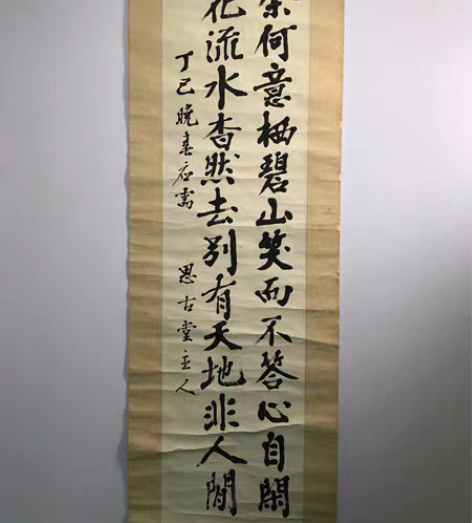 余何意栖碧山笑而不答心自閑
花流水杳然去别有天地非人間
丁巳晚春石窗 思古堂主人